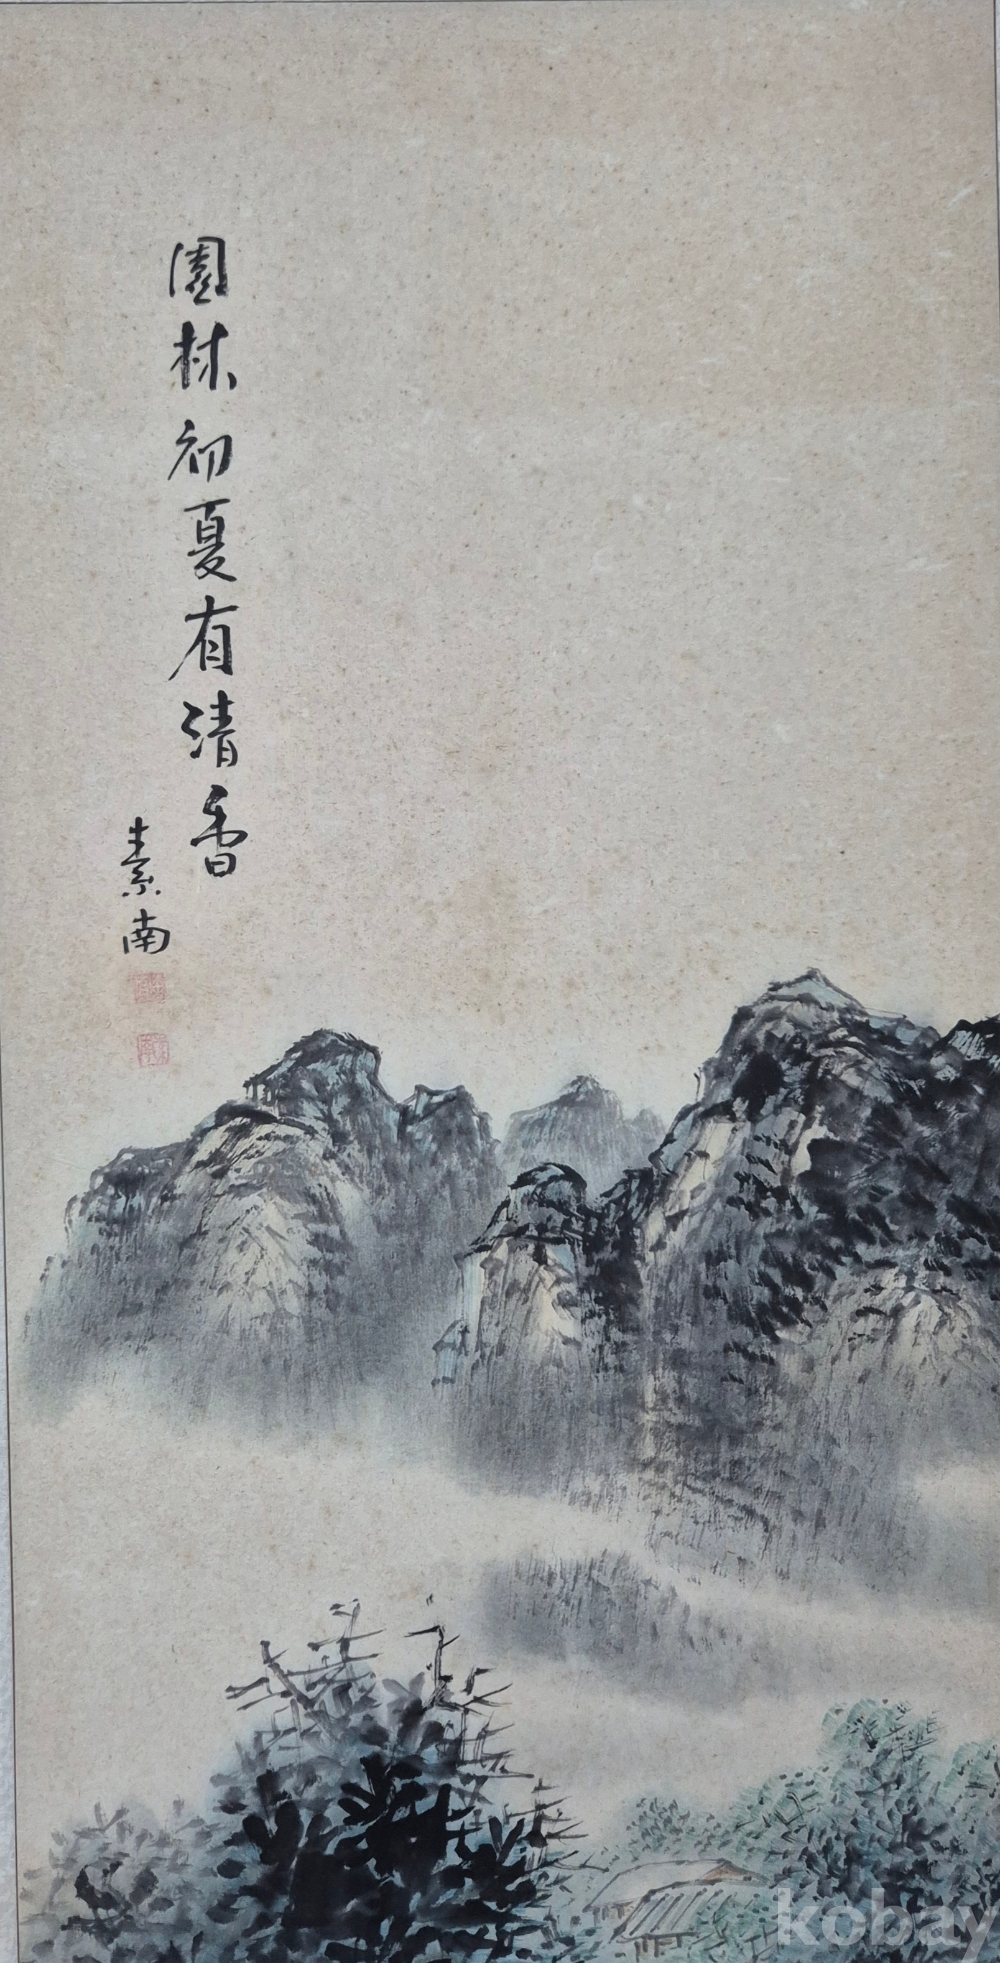 園林初夏有清香
素南
kobay